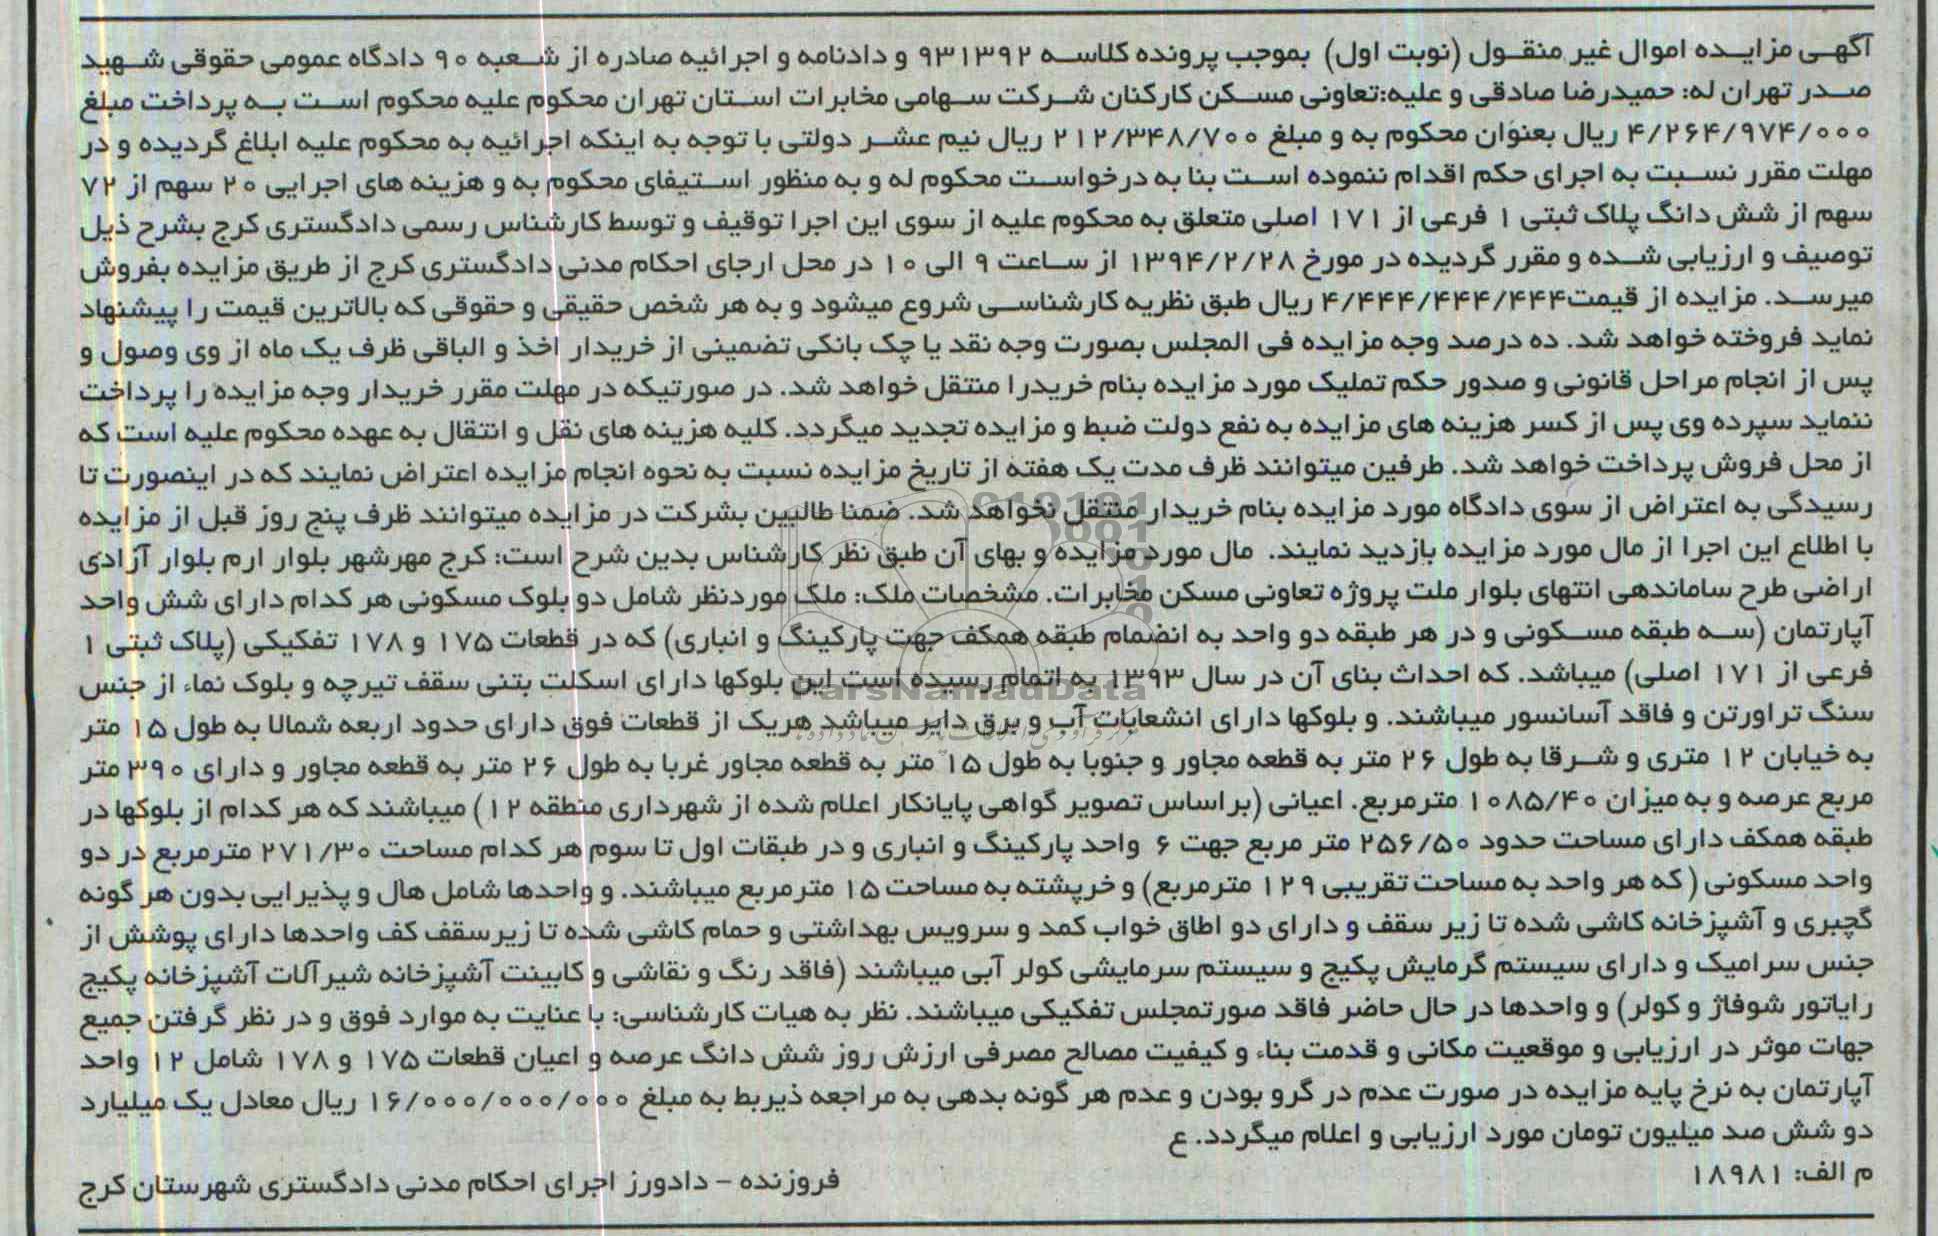 آگهی مزایده اموال غیر منقول (نوبت اول) بموجب پرونده کلاسه ۹۳۱۳۹۲ و دادنامه و اجرائیه صادره از شعبه ۹۰ دادگاه عمومی حقوقی شهید
صدر تهران له: حمیدرضا صادقی و علیه:تعاونی مسکن کارکنان شرکت سهامی مخابرات استان تهران محکوم علیه محکوم است به پرداخت مبلغ
۴/۲۶۴/۹۷۴/۰۰۰ ریال بعنوان محکوم به و مبلغ ۲۱۲/۳۴۸/۷۰۰ ریال نیم عشر دولتی با توجه به اینکه اجرائیه به محکوم علیه ابلاغ گردیده و در
مهلت مقرر نسبت به اجرای حکم اقدام ننموده است بنا به درخواست محکوم له و به منظور استیفای محکوم به و هزینه های اجرایی ۲۰ سهم از ۷۲
سهم از شش دانگ پلاک ثبتی ۱ فرعی از ۱۷۱ اصلی متعلق به محکوم علیه از سوی این اجرا توقیف و توسط کارشناس رسمی دادگستری کرج بشرح ذیل
توصیف و ارزیابی شده و مقرر گردیده در مورخ ۱۳۹۴/۲/۲۸ از ساعت ۹ الی ۱۰ در محل ارجای احکام مدنی دادگستری کرج از طریق مزایده بفروش
میرسد. مزایده از قیمت۴/۴۴۴/۴۴۴/۴۴۴ ریال طبق نظریه کارشناسی شروع میشود و به هر شخص حقیقی و حقوقی که بالاترین قیمت را پیشنهاد
نماید فروخته خواهد شد. ده درصد وجه مزایده فی المجلس بصورت وجه نقد یا چک بانکی تضمینی از خریدار اخذ و الباقی ظرف یک ماه از وی وصول و
پس از انجام مراحل قانونی و صدور حکم تملیک مورد مزایده بنام خریدرا منتقل خواهد شد. در صورتیکه در مهلت مقرر خریدار وجه مزایده را پرداخت
ننماید سپرده وی پس از کسر هزینه های مزایده به نفع دولت ضبط و مزایده تجدید میگردد. کلیه هزینه های نقل و انتقال به عهده محکوم علیه است که
از محل فروش پرداخت خواهد شد. طرفین میتوانند ظرف مدت یک هفته از تاریخ مزایده نسبت به نحوه انجام مزایده اعتراض نمایند که در اینصورت تا
رسیدگی به اعتراض از سوی دادگاه مورد مزایده بنام خریدار منتقل نخواهد شد. ضمنا طالبین بشرکت در مزایده میتوانند ظرف پنج روز قبل از مزایده
با اطلاع این اجرا از مال مورد مزایده بازدید نمایند. مال مورد مزایده و بهای آن طبق نظر کارشناس بدین شرح است: کرج مهرشهر بلوار ارم بلوار آزادی
اراضی طرح ساماندهی انتهای بلوار ملت پروژه تعاونی مسکن مخابرات. مشخصات ملک: ملک موردنظر شامل دو بلوک مسکونی هر کدام دارای شش واحد
آپارتمان (سه طبقه مسکونی و در هر طبقه دو واحد به انضمام طبقه همکف جهت پارکینگ و انباری) که در قطعات ۱۷۵ و ۱۷۸ تفکیکی (پلاک ثبتی ۱
فرعی از ۱۷۱ اصلی) میباشد. که احداث بنای آن در سال ۱۳۹۳ به اتمام رسیده است این بلوکها دارای اسکلت بتنی سقف تیرچه و بلوک نماء از جنس
سنگ تراورتن و فاقد آسانسور میباشند. و بلوکها دارای انشعابات آب و برق دایر میباشد هریک از قطعات فوق دارای حدود اربعه شمالا به طول ۱۵ متر
به خیابان ۱۲ متری و شرقا به طول ۲۶ متر به قطعه مجاور و جنوبا به طول ۱۵ متر به قطعه مجاور غربا به طول ۲۶ متر به قطعه مجاور و دارای ۳۹۰ متر
مربع عرصه و به میزان ۱۰۸۵/۴۰ مترمربع. اعیانی (براساس تصویر گواهی پایانکار اعلام شده از شهرداری منطقه ۱۲) میباشند که هر کدام از بلوکها در
طبقه همکف دارای مساحت حدود ۲۵۶/۵۰ متر مربع جهت ۶ واحد پارکینگ و انباری و در طبقات اول تا سوم هر کدام مساحت ۲۷۱/۳۰ مترمربع در دو
واحد مسکونی (که هر واحد به مساحت تقریبی ۱۲۹ مترمربع) و خرپشته به مساحت ۱۵ مترمربع میباشند. و واحدها شامل هال و پذیرایی بدون هر گونه
گچبری و آشپزخانه کاشی شده تا زیر سقف و دارای دو اطاق خواب کمد و سرویس بهداشتی و حمام کاشی شده تا زیرسقف کف واحدها دارای پوشش از
جنس سرامیک و دارای سیستم گرمایش پکیج و سیستم سرمایشی کولر آبی میباشند (فاقد رنگ و نقاشی و کابینت آشپزخانه شیرآلات آشپزخانه پکیج
رایاتور شوفاژ و کولر) و واحدها در حال حاضر فاقد صورتمجلس تفکیکی میباشند. نظر به هیات کارشناسی: با عنایت به موارد فوق و در نظر گرفتن جمیع
جهات موثر در ارزیابی و موقعیت مکانی و قدمت بناء و کیفیت مصالح مصرفی ارزش روز شش دانگ عرصه و اعیان قطعات ۱۷۵ و ۱۷۸ شامل ۱۲ واحد
آپارتمان به نرخ پایه مزایده در صورت عدم در گرو بودن و عدم هر گونه بدهی به مراجعه ذیربط به مبلغ ۱۶/۰۰۰/۰۰۰/۰۰۰ ریال معادل یک میلیارد
دو شش صد میلیون تومان مورد ارزیابی و اعلام میگردد. ع
م الف: ۱۸۹۸۱
فروزنده - دادورز اجرای احکام مدنی دادگستری شهرستان کرج
ParsNamadData